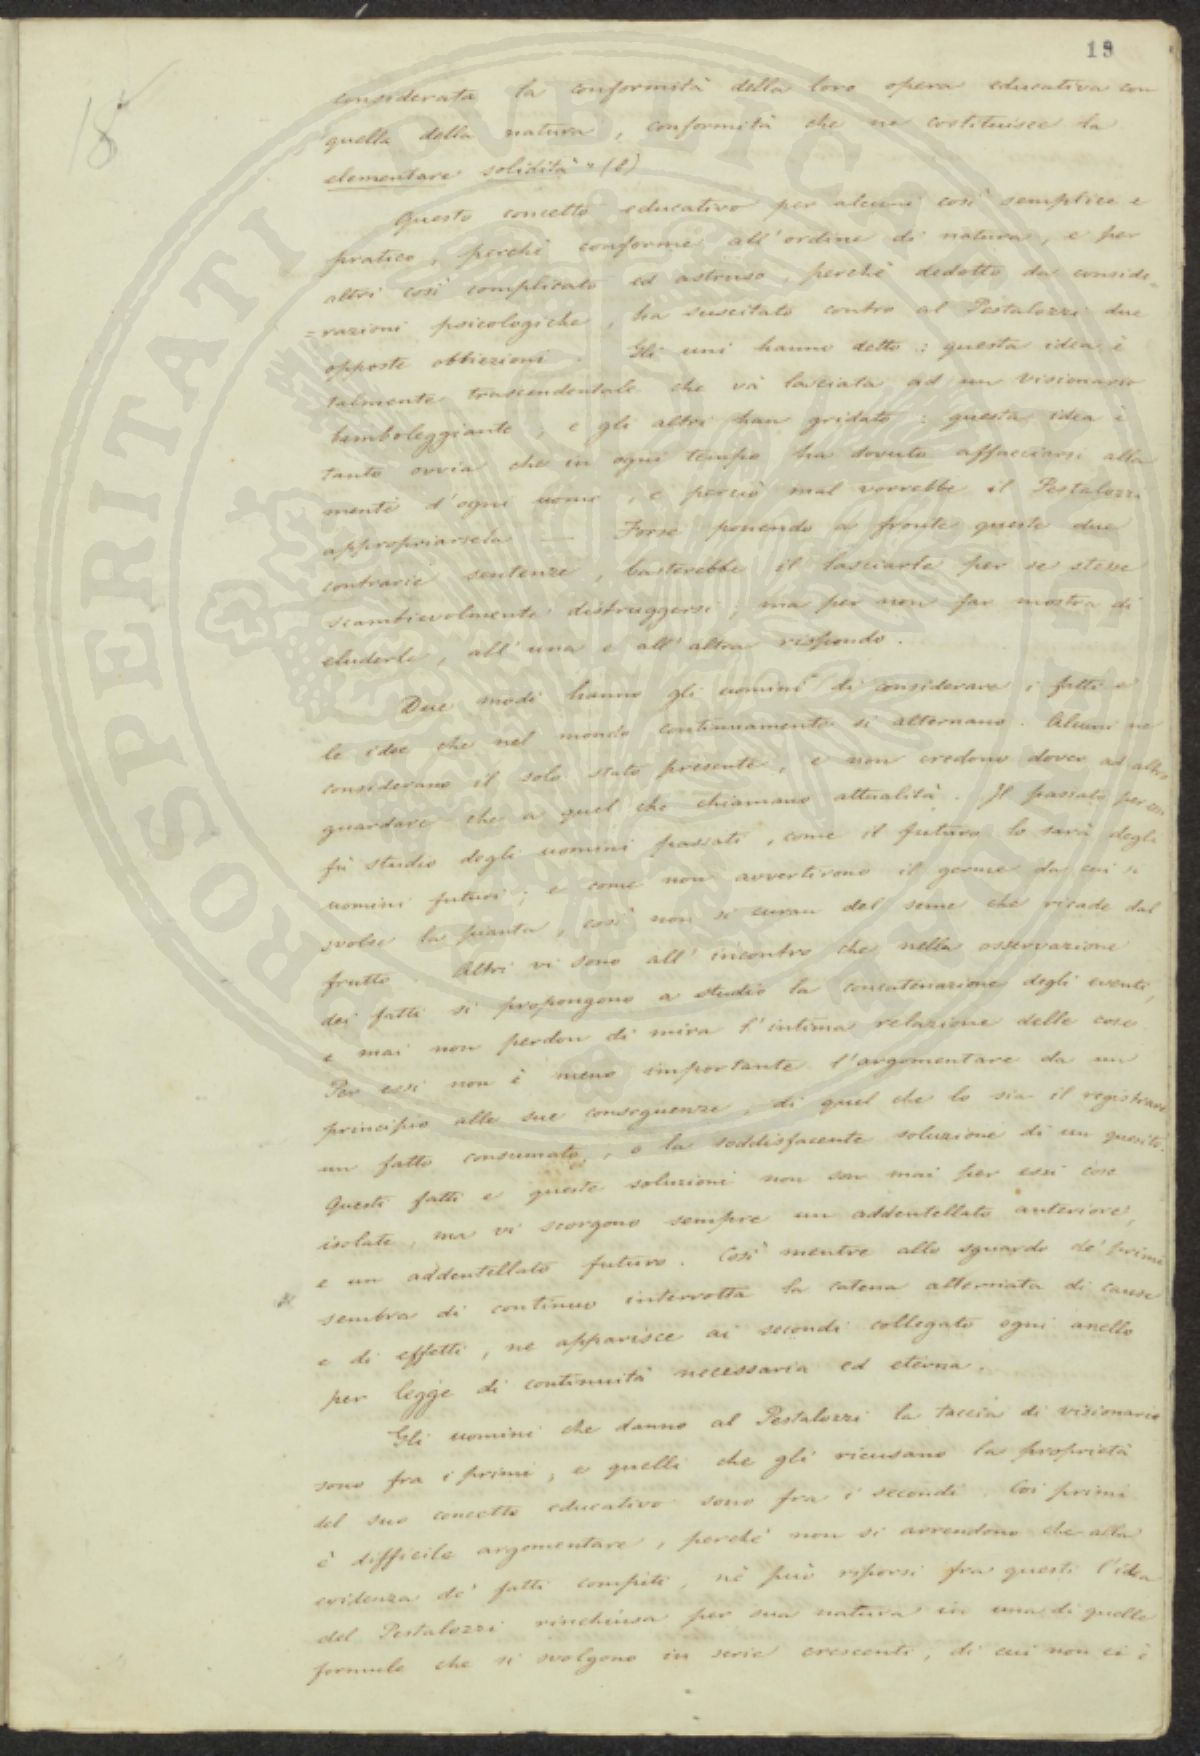 19
18
considerata la conformità della loro opera educativa con
quella della natura, conformità che ne costituisce la
elementare solidità" (6)
Questo concetto educativo per alcuni così semplice e
pratico, perchè conforme all'ordine di natura, e per
altri così complicato ed astruso, perchè dedotto da conside=
=razioni psicologiche, ha suscitato contro al Pestalozzi due
opposte obbiezioni. Gli uni hanno detto: questa idea è
talmente trascendentale che và lasciata ad un visionario
bamboleggiante, e gli altri han gridato: questa idea è
tanto ovvia che in ogni tempo ha dovuto affacciarsi alla
mente d'ogni uomo, e perciò mal vorrebbe il Pestalozzi
appropriarsela — Forse ponendo a fronte queste due
contrarie sentenze, basterebbe il lasciarle per se stesse
scambievolmente distruggersi; ma per non far mostra di
eluderle, all'una e all'altra rispondo.
Due modi hanno gli uomini di considerare i fatti e
le idee che nel mondo continuamente si alternano. Alcuni ne
considerano il solo stato presente, e non credono dover ad altro
guardare che a quel che chiamano attualità. Il passato per essi
fù studio degli uomini passati, come il futuro lo sarà degli
uomini futuri; e come non avvertirono il germe da cui si
svolse la pianta, così non si curan del seme che ricade dal
frutto. Altri vi sono all'incontro che nella osservazione
dei fatti si propongono a studio la concatenazione degli eventi,
e mai non perdon di mira l'intima relazione delle cose.
Per essi non è meno importante l'argomentare da un
principio alle sue conseguenze, di quel che lo sia il registrare
un fatto consumato, o la soddisfacente soluzione di un quesito.
Questi fatti e queste soluzioni non son mai per essi cose
isolate, ma vi scorgono sempre un addentellato anteriore,
e un addentellato futuro. Così mentre allo sguardo de' primi
sembra di continuo interrotta la catena alternata di cause
e di effetti, ne apparisce ai secondi collegato ogni anello
per legge di continuità necessaria ed eterna.
Gli uomini che danno al Pestalozzi la taccia di visionario
sono fra i primi, e quelli che gli ricusano la proprietà
del suo concetto educativo sono fra i secondi. Coi primi
è difficile argomentare, perchè non si arrendono che alla
evidenza de' fatti compiti, nè può riporsi fra questi l'idea
del Pestalozzi rinchiusa per sua natura in una di quelle
formule che si svolgono in serie crescenti, di cui non ci è
PROSPERITATI PVBLICAE